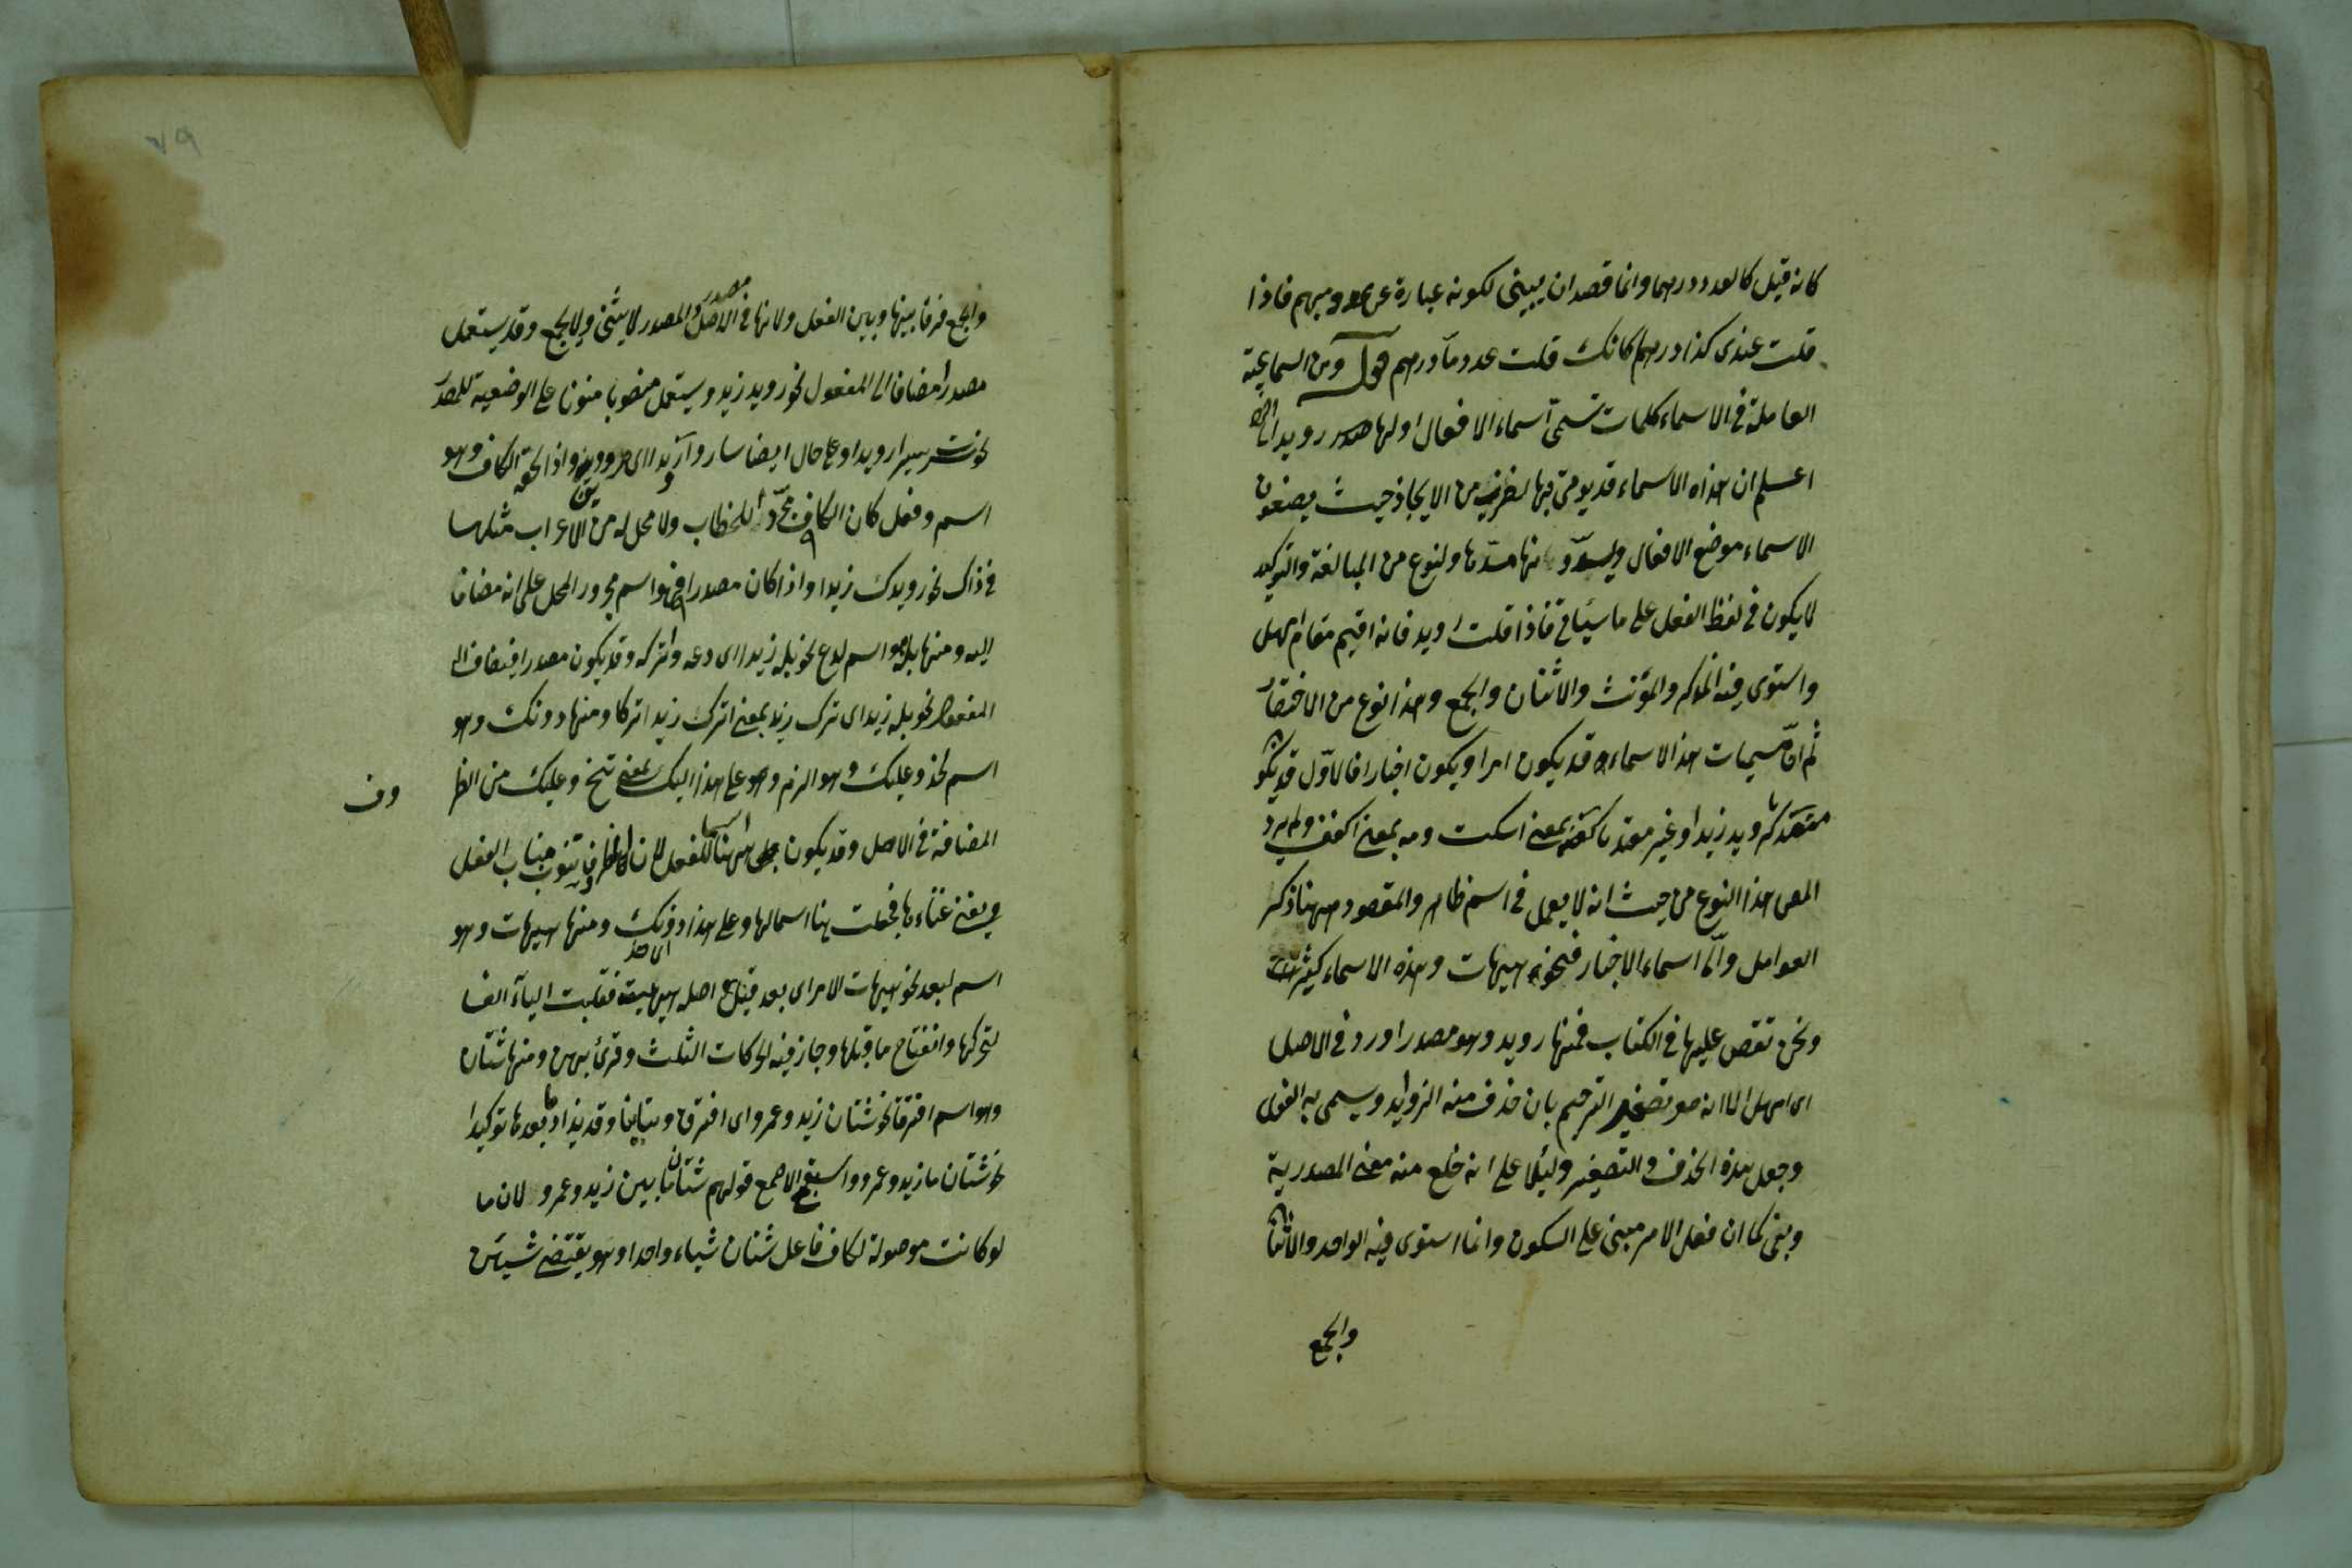 كانه قيل كالعدد درهما وانما قصد ان يبنى لكونه عبارة عن عدد مبهم فاذا
قلت عندى كذا درهما كانك قلت عدد ما درهم قوله ومن السماعية
العاملة فى الاسماء كلمات تسمى اسماء الافعال اولها رويد الخ
اعلم ان هذه الاسماء قد يؤتى بها لضرب من الايجاز حيث يضعون
الاسماء موضع الافعال مسدها ولنوع من المبالغة والتوكيد
لا يكون فى لفظ الفعل على ما سياتى فاذا قلت رويد فانه اقيم مقام امهل
واستوى فيه المذكر والمؤنث والاثنان والجمع وهذا نوع من الاختصار
ثم ان مسميات هذا الاسماء قد يكون امرا ويكون اخبارا فالاول قد يكون
متعديا كرويد زيدا وغير متعد كصه بمعنى اسكت ومه بمعنى اكفف ولم يرد
المص هذا النوع من حيث انه لا يعمل فى اسم ظاهر والمقصود ههنا ذكر
العوامل واما اسماء الاخبار فنحو هيهات وهذه الاسماء كثيرة
ونحن نقص عليها فى الكتاب فمنها رويد وهو مصدر اورد فى الاصل
اى امهل الا انه صغر تصغير الترخيم بان حذف منه الزوايد وسمى به الفعل
وجعل هذه الحذف والتصغير دليلا على انه خلع منه معنى المصدرية
وبنى كما ان فعل الامر مبنى على السكون وانما استوى فيه الواحد والاثنان
والجمع
والجمع فرقا بينها وبين الفعل ولانها فى الاصل مصدر والمصدر لا يثنى ولا يجمع وقد يستعمل
مصدرا مضافا الى المفعول نحو رويد زيد ويستعمل منصوبا منونا على الوضعية للمصدر
نحو سرت سيرا رويدا وعلى حال ايضا ساروا رويدا اى مرودين واذا لحقه الكاف وهو
اسم وفعل كان الكاف مجردا للخطاب ولا محل له من الاعراب مثلها
فى ذاك نحو رويدك زيدا واذا كان مصدرا فهو اسم مجرور المحل على انه مضاف
اليه ومنها بله وهو اسم لدع نحو بله زيدا اى دعه واتركه وقد يكون مصدرا فيضاف الى
المفعول نحو بله زيد اى ترك زيد بمعنى اترك زيدا تركا ومنها دونك وهو
اسم لخذ وعليك وهو الزم وهو على هذا اليك بمعنى تنح وعليك من الظروف
المضافة فى الاصل وقد يكون اسما للفعل لان الظروف تنوب مناب الفعل
ويغنى غناءها فجعلت هنا اسما لها وعلى هذا دونك اى خذ ومنها هيهات وهو
اسم لبعد نحو هيهات الامر اى بعد قيل اصله هيهية فقلبت الياء الفا
لتحركها وانفتاح ما قبلها وجاز فيه الحركات الثلث وقرئ بهن ومنها شتان
وهو اسم افترق نحو شتان زيد وعمرو اى افترق وتباينا وقد يزاد ما بعدها توكيدا
نحو شتان ما زيد وعمرو واستقبح الاصمع قولهم شتان ما بين زيد وعمرو لان ما
لو كانت موصولة لكان فاعل شتان شيئا واحدا وهو يقتضى شيئين